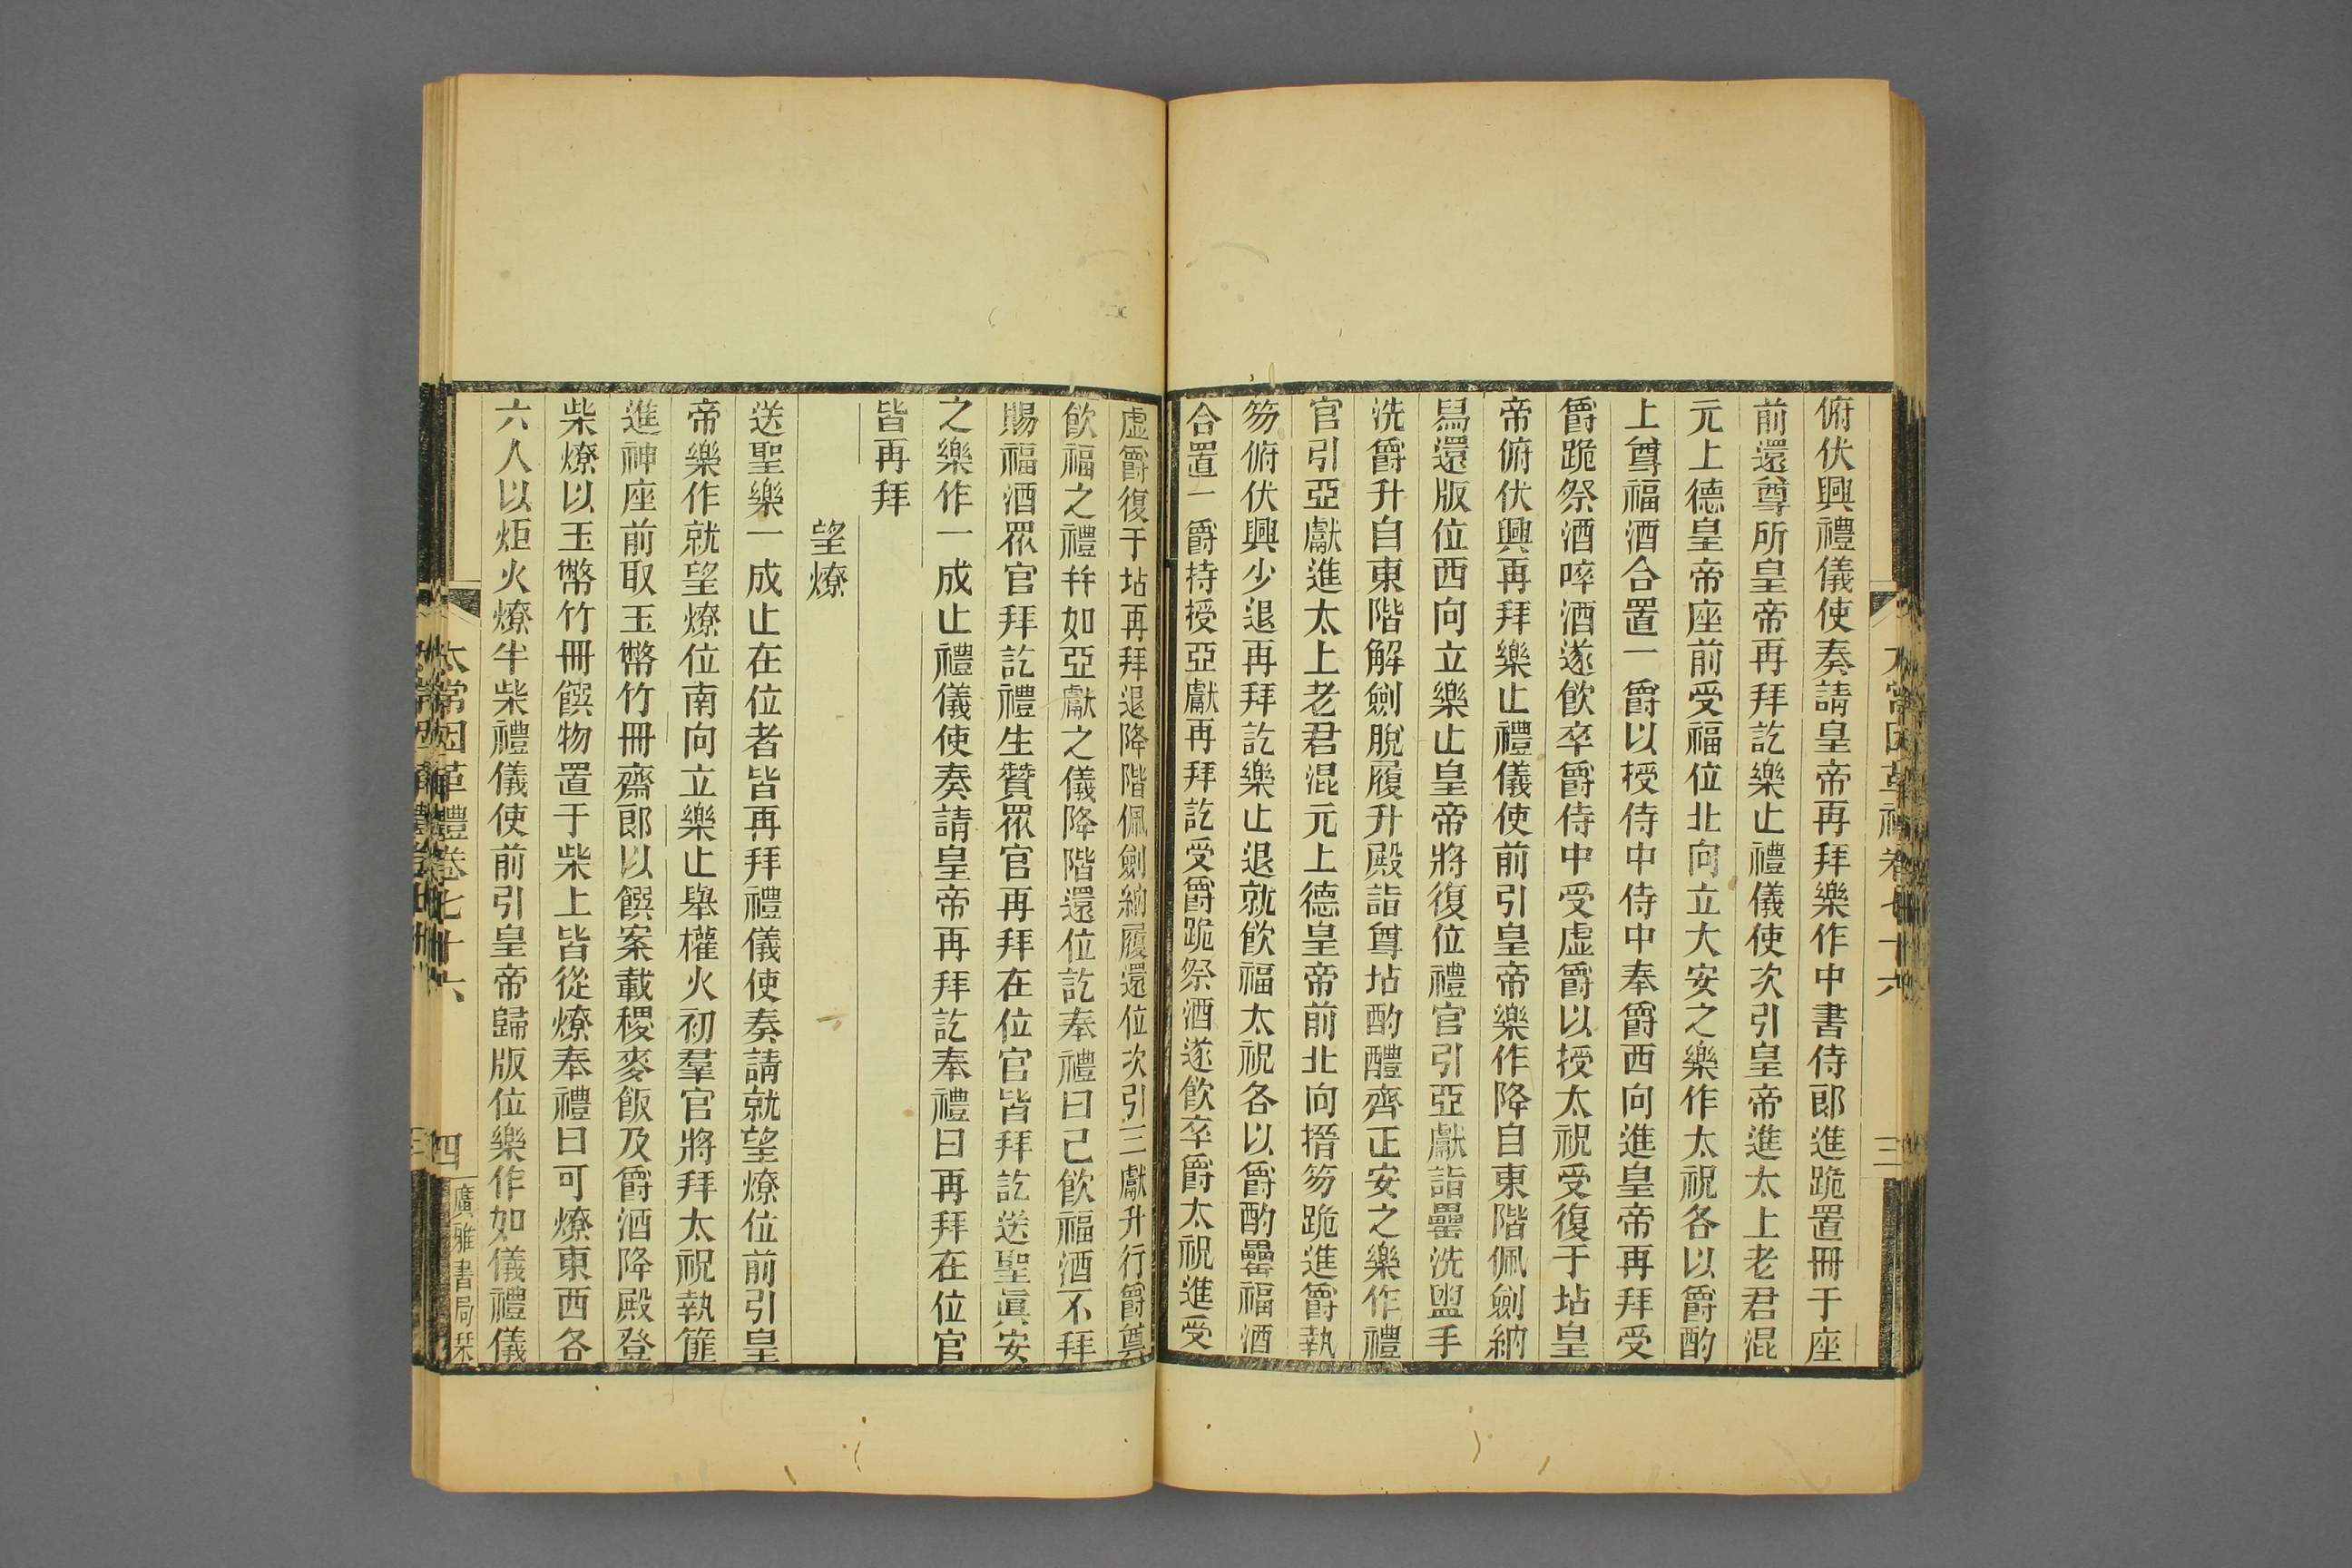 俯伏興禮儀使奏請皇帝再拜樂作中書侍郎進跪置冊于座
前還尊所皇帝再拜訖樂止禮儀使次引皇帝進太上老君混
元上德皇帝座前受福位北向立大安之樂作太祝各以爵酌
上尊福酒合置一爵以授侍中侍中奉爵西向進皇帝再拜受
爵跪祭酒啐酒遂飲卒爵侍中受虛爵以授太祝受復于坫皇
帝俯伏興再拜樂止禮儀使前引皇帝樂作降自東階佩劍納
舄還版位西向立樂止皇帝將復位禮官引亞獻詣罍洗盥手
洗爵升自東階解劍脫履升殿詣尊坫酌醴齊正安之樂作禮
官引亞獻進太上老君混元上德皇帝前北向搢笏跪進爵執
笏俯伏興少退再拜訖樂止退就飲福太祝各以爵酌罍福酒
合置一爵持授亞獻再拜訖受爵跪祭酒遂飲卒爵太祝進受
虛爵復于坫再拜退降階佩劍納履還位次引三獻升行爵尊
飲福之禮幷如亞獻之儀降階還位訖奉禮曰已飲福酒不拜
賜福酒眾官拜訖禮生贊眾官再拜在位官皆拜訖送聖眞安
之樂作一成止禮儀使奏請皇帝再拜訖奉禮曰再拜在位官
皆再拜
望燎
送聖樂一成止在位者皆再拜禮儀使奏請就望燎位前引皇
帝樂作就望燎位南向立樂止舉權火初羣官將拜太祝執篚
進神座前取玉幣竹冊齋郎以饌案載稷麥飯及爵酒降殿登
柴燎以玉幣竹冊饌物置于柴上皆從燎奉禮曰可燎東西各
六人以炬火燎半柴禮儀使前引皇帝歸版位樂作如儀禮儀
太常因革禮卷七十六
四
廣雅書局栞